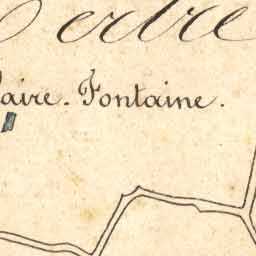 Tertre
laire. Fontaine.